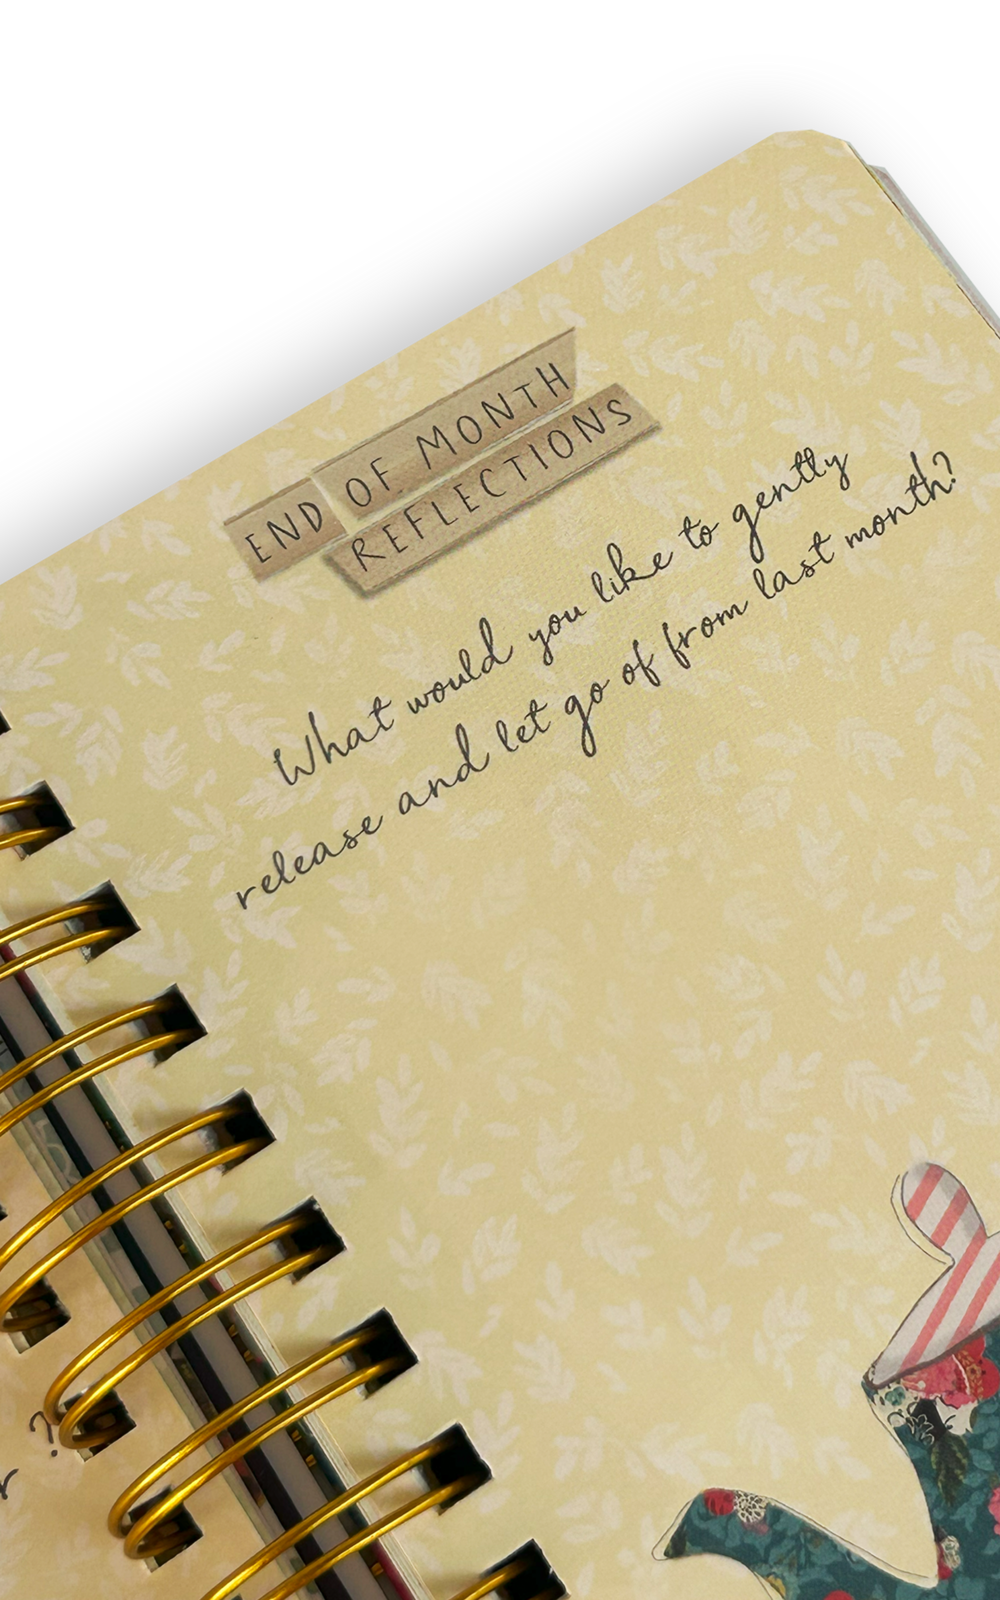 END OF MONTH
REFLECTIONS
What would you like to gently
release and let go of from last month?